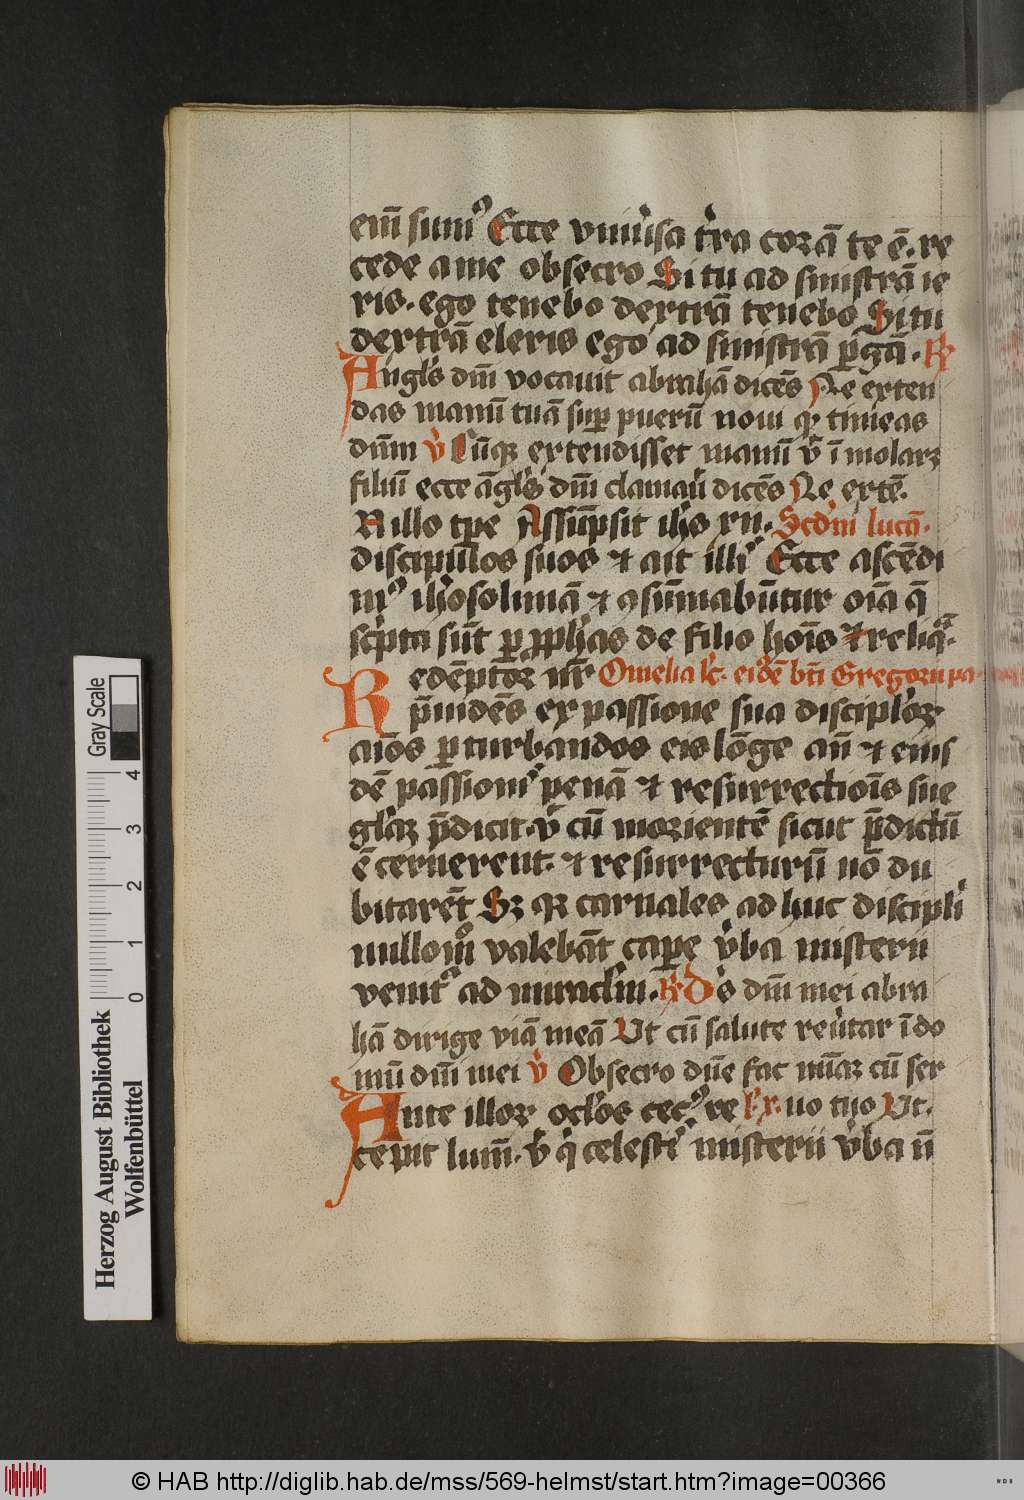 em̄ sumꝰ Ecce vniu̾sa t̾ra corā te ē. re
cede a me obsecro Si tu ad sinistrā ie
ris. ego tenebo dextrā tenebo Si tu
dextrā eleris ego ad sinistrā ꝑgā. ℞
Angl̾s dm̄ vocauit abrahā dicēs Ne exten
das manū tuā suꝑ puerū noui qꝛ timeas
dn̄m v̾ Cūqꝫ extendisset manū vt̾ īmolarꝫ
filiū ecce āgl̾s dm̄ clamau̾ dicēs Ne extē.
N illo tꝑe Assūpsit ih̄s xii. Scd̾m lucā.
discipulos suos ⁊ ait illiˢ Ecce ascēdi
mꝰ ih̾osolimā ⁊ ꝯsūmabūtur oīa q̄
sc̾pta sūt ꝑ ꝓph̾as de filio hoīs ⁊ reliqᵃ.
Redēptor nr̄ Omelia lc̄. eiᵈdē bt̄i Gregorii pa-
p̄uidēs ex passione sua discipl̾oꝝ
aīos ꝑturbandos eis lōge an̄ ⁊ eius
dē passioniˢ penā ⁊ resurrectiōis sue
gl̾aꝫ p̄dicit. vt̾ cū morientē sicut p̄dictū
ē cernerent. ⁊ resurrecturū nō du
bitarēt Sꝫ qꝛ carnales adhuc discipl̾i
nulloᵒm̄ valebāt caꝑe v̾ba misterii
venitᵃ ad miracl̾m. ℞ D̾s dm̄ mei abra
hā dirige viā meā Ut cū salute reu̾tar ī do
mū dm̄ mei v̾ Obsecro dn̄e fac mīaꝫ cū ser
Ante illoꝝ ocl̾os cecꝰ re l̾x. uo tuo Ut.
cepit lum̄. vt̾ q̾ celestiˢ misterii v̾ba n̄
Gray Scale
4
3
2
1
0
Herzog August Bibliothek
Wolfenbüttel
© HAB http://diglib.hab.de/mss/569-helmst/start.htm?image=00366